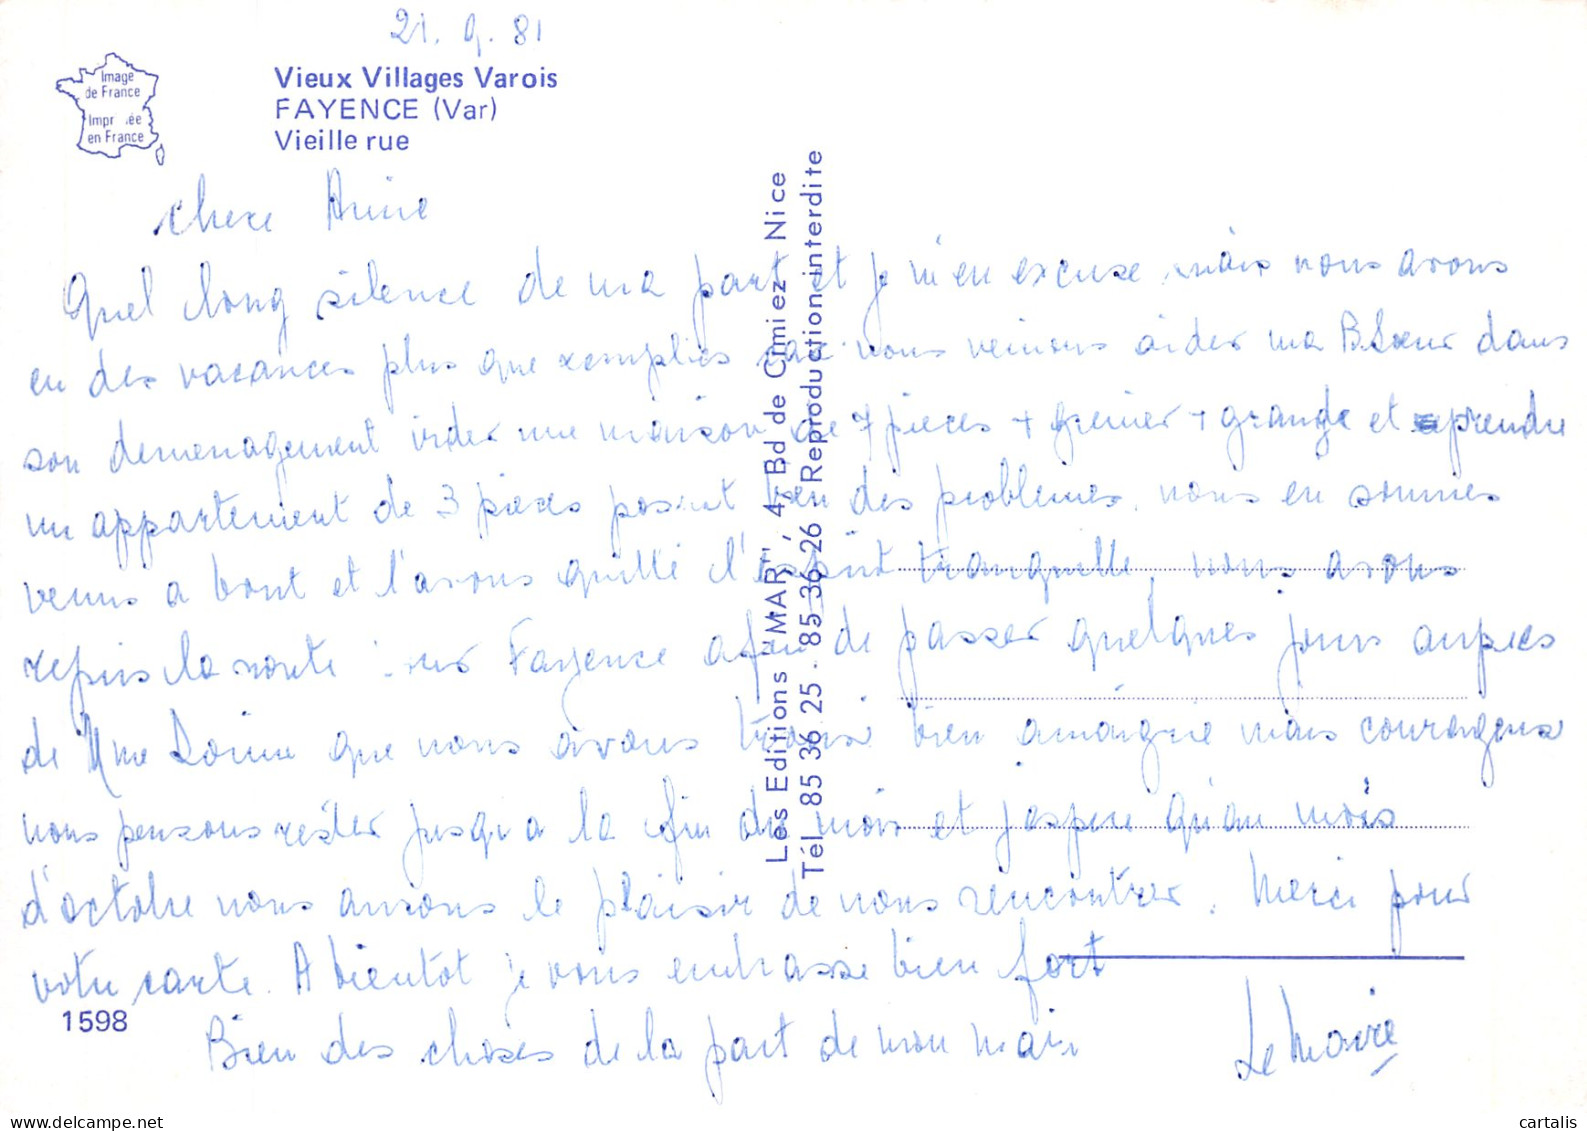 21. 9. 81
Image
de France
Impr ée
en France
Vieux Villages Varois
FAYENCE (Var)
Vieille rue
chere Amie
Quel long silence de ma part et je m'en excuse mais nous avons
eu des vacances plus que remplies car nous venions aider ma B. Soeur dans
son demenagement vider une maison de 7 pièces + grenier + grange et prendre
un appartement de 3 pièces posait bien des problemes. nous en sommes
venus a bout et l'avons quitté l'esprit tranquille, nous avons
repris la route sur Fayence afin de passer quelques jours aupres
de Mme que nous avons trouvé bien amaigrie mais courageuse
nous pensons rester jusqu'a la fin du mois et j'espere qu'au mois
d'octobre nous aurons le plaisir de nous rencontrer. Merci pour
votre carte. A bientot je vous embrasse bien fort
Bien des choses de la part de mon mari
Lemaire
1598
Les Editions "MAR", 4, Bd de Cimiez - Nice
Tél. 85 36 25 - 85 36 26 Reproduction interdite
delcampe.net
cartalis